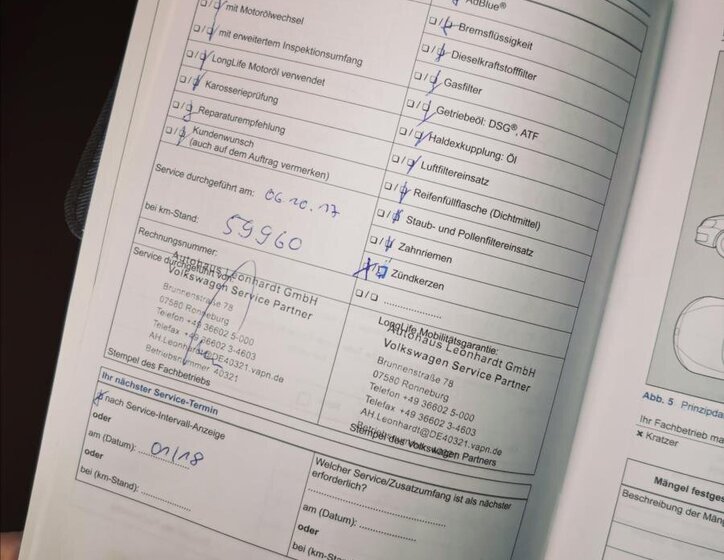 ❏/❏ mit Motorölwechsel
❏/❏ mit erweitertem Inspektionsumfang
❏/❏ LongLife Motoröl verwendet
❏/❏ Karosserieprüfung
❏/❏ Reparaturempfehlung
❏/❏ Kundenwunsch
(auch auf dem Auftrag vermerken)
Service durchgeführt am: 06.10.17
bei km-Stand: 59960
Rechnungsnummer:
Service durchgeführt von:
Autohaus Leonhardt GmbH
Volkswagen Service Partner
Brunnenstraße 78
07580 Ronneburg
Telefon +49 36602 5-000
Telefax +49 36602 3-4603
AH.Leonhardt@DE40321.vapn.de
Betriebsnummer 40321
Stempel des Fachbetriebs
AdBlue®
❏/❏ Bremsflüssigkeit
❏/❏ Dieselkraftstofffilter
❏/❏ Gasfilter
❏/❏ Getriebeöl: DSG®, ATF
❏/❏ Haldexkupplung: Öl
❏/❏ Luftfiltereinsatz
❏/❏ Reifenfüllflasche (Dichtmittel)
❏/❏ Staub- und Pollenfiltereinsatz
❏/❏ Zahnriemen
❏/❏ Zündkerzen
❏/❏ ....................
LongLife Mobilitätsgarantie:
Autohaus Leonhardt GmbH
Volkswagen Service Partner
Brunnenstraße 78
07580 Ronneburg
Telefon +49 36602 5-000
Telefax +49 36602 3-4603
AH.Leonhardt@DE40321.vapn.de
Stempel des Volkswagen Partners
Ihr nächster Service-Termin
❏ nach Service-Intervall-Anzeige
oder
am (Datum): 01/18
oder
bei (km-Stand): ...............
Welcher Service/Zusatzumfang ist als nächster
erforderlich?
am (Datum): ...............
oder
bei (km-Stand)
Abb. 5 Prinzipda
Ihr Fachbetrieb ma
× Kratzer
Mängel festges
Beschreibung der Mäng